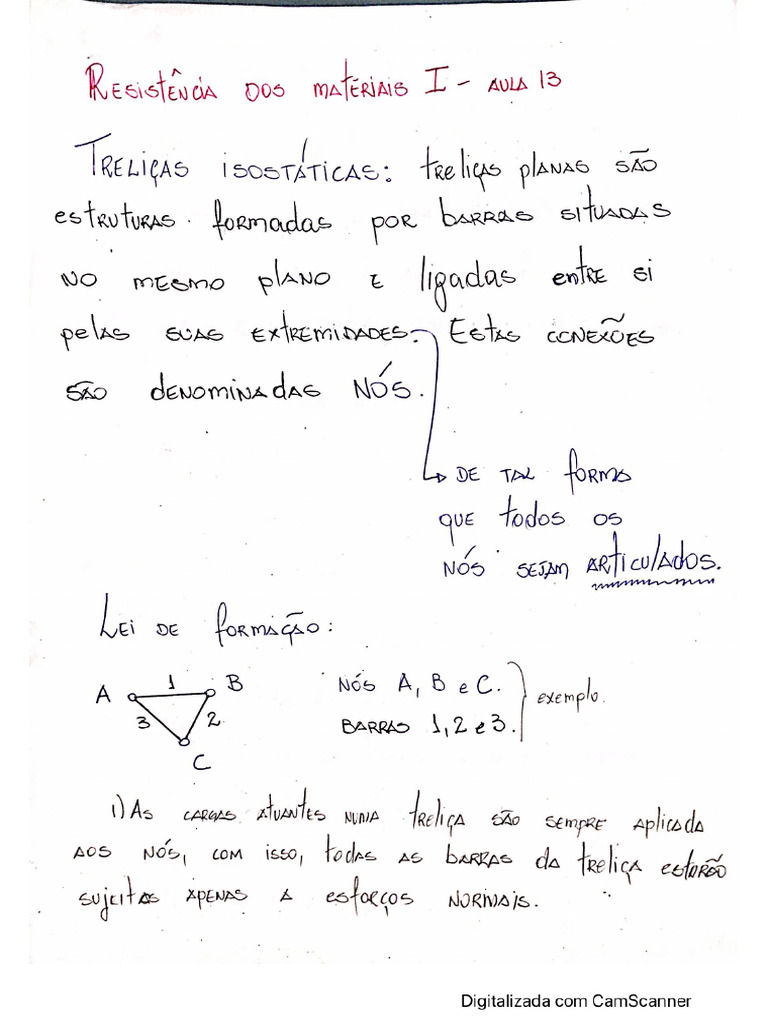 Resistência dos materiais I - Aula 13
Treliças isostáticas: treliças planas são
estruturas formadas por barras situadas
no mesmo plano e ligadas entre si
pelas suas extremidades. Estas conexões
são denominadas nós.
de tal forma
que todos os
nós sejam articulados.
Lei de formação:
A 1 B
3 2
C
Nós A, B e C.
Barras 1, 2 e 3.
exemplo.
1) As cargas atuantes numa treliça são sempre aplicada
aos nós, com isso, todas as barras da treliça estarão
sujeitas apenas a esforços normais.
Digitalizada com CamScanner